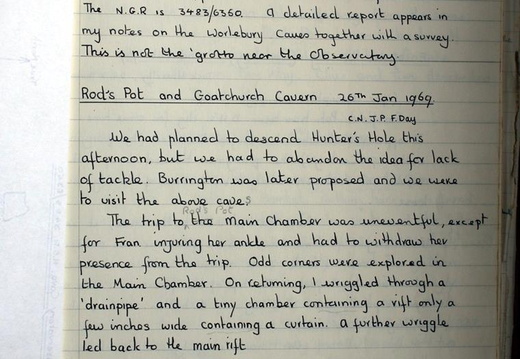 The N.G.R is 3483/6360. A detailed report appears in
my notes on the Worlebury Caves together with a survey.
This is not the 'grotto near the Observatory.
Rod's Pot and Goatchurch Cavern 26Th Jan 1969
C.N. J.P. F.Day
We had planned to descend Hunter's Hole this
afternoon, but we had to abandon the idea for lack
of tackle. Burrington was later proposed and we were
to visit the above caves
Rod's Pot
The trip to the Main Chamber was uneventful, except
for Fran injuring her ankle and had to withdraw her
presence from the trip. Odd corners were explored in
the Main Chamber. On returning, I wriggled through a
'drainpipe' and a tiny chamber containing a rift only a
few inches wide containing a curtain. A further wriggle
led back to the main rift